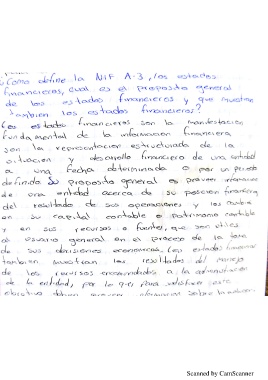 ¿Como define la NIF A-3, los estados
financieros, cual es el proposito general
de los estados financieros y que muestran
tambien los estados financieros?
Los estados financieros son la manifestacion
fundamental de la informacion financiera,
son la representacion estructurada de la
situacion y desarrollo financiero de una entidad
a una fecha determinada o por un periodo
definido su proposito general es proveer informacion
de una entidad acerca de su posicion financiera,
del resultado de sus operaciones y los cambios
en su capital contable o patrimonio contable
y en sus recursos o fuentes, que son utiles
al usuario general en el proceso de la toma
de sus decisiones economicas. Los estados financieros
tambien muestran los resultados del manejo
de los recursos encomendados a la administracion
de la entidad, por lo que para satisfacer este
objetivo deben proveer informacion sobre la
Scanned by CamScanner